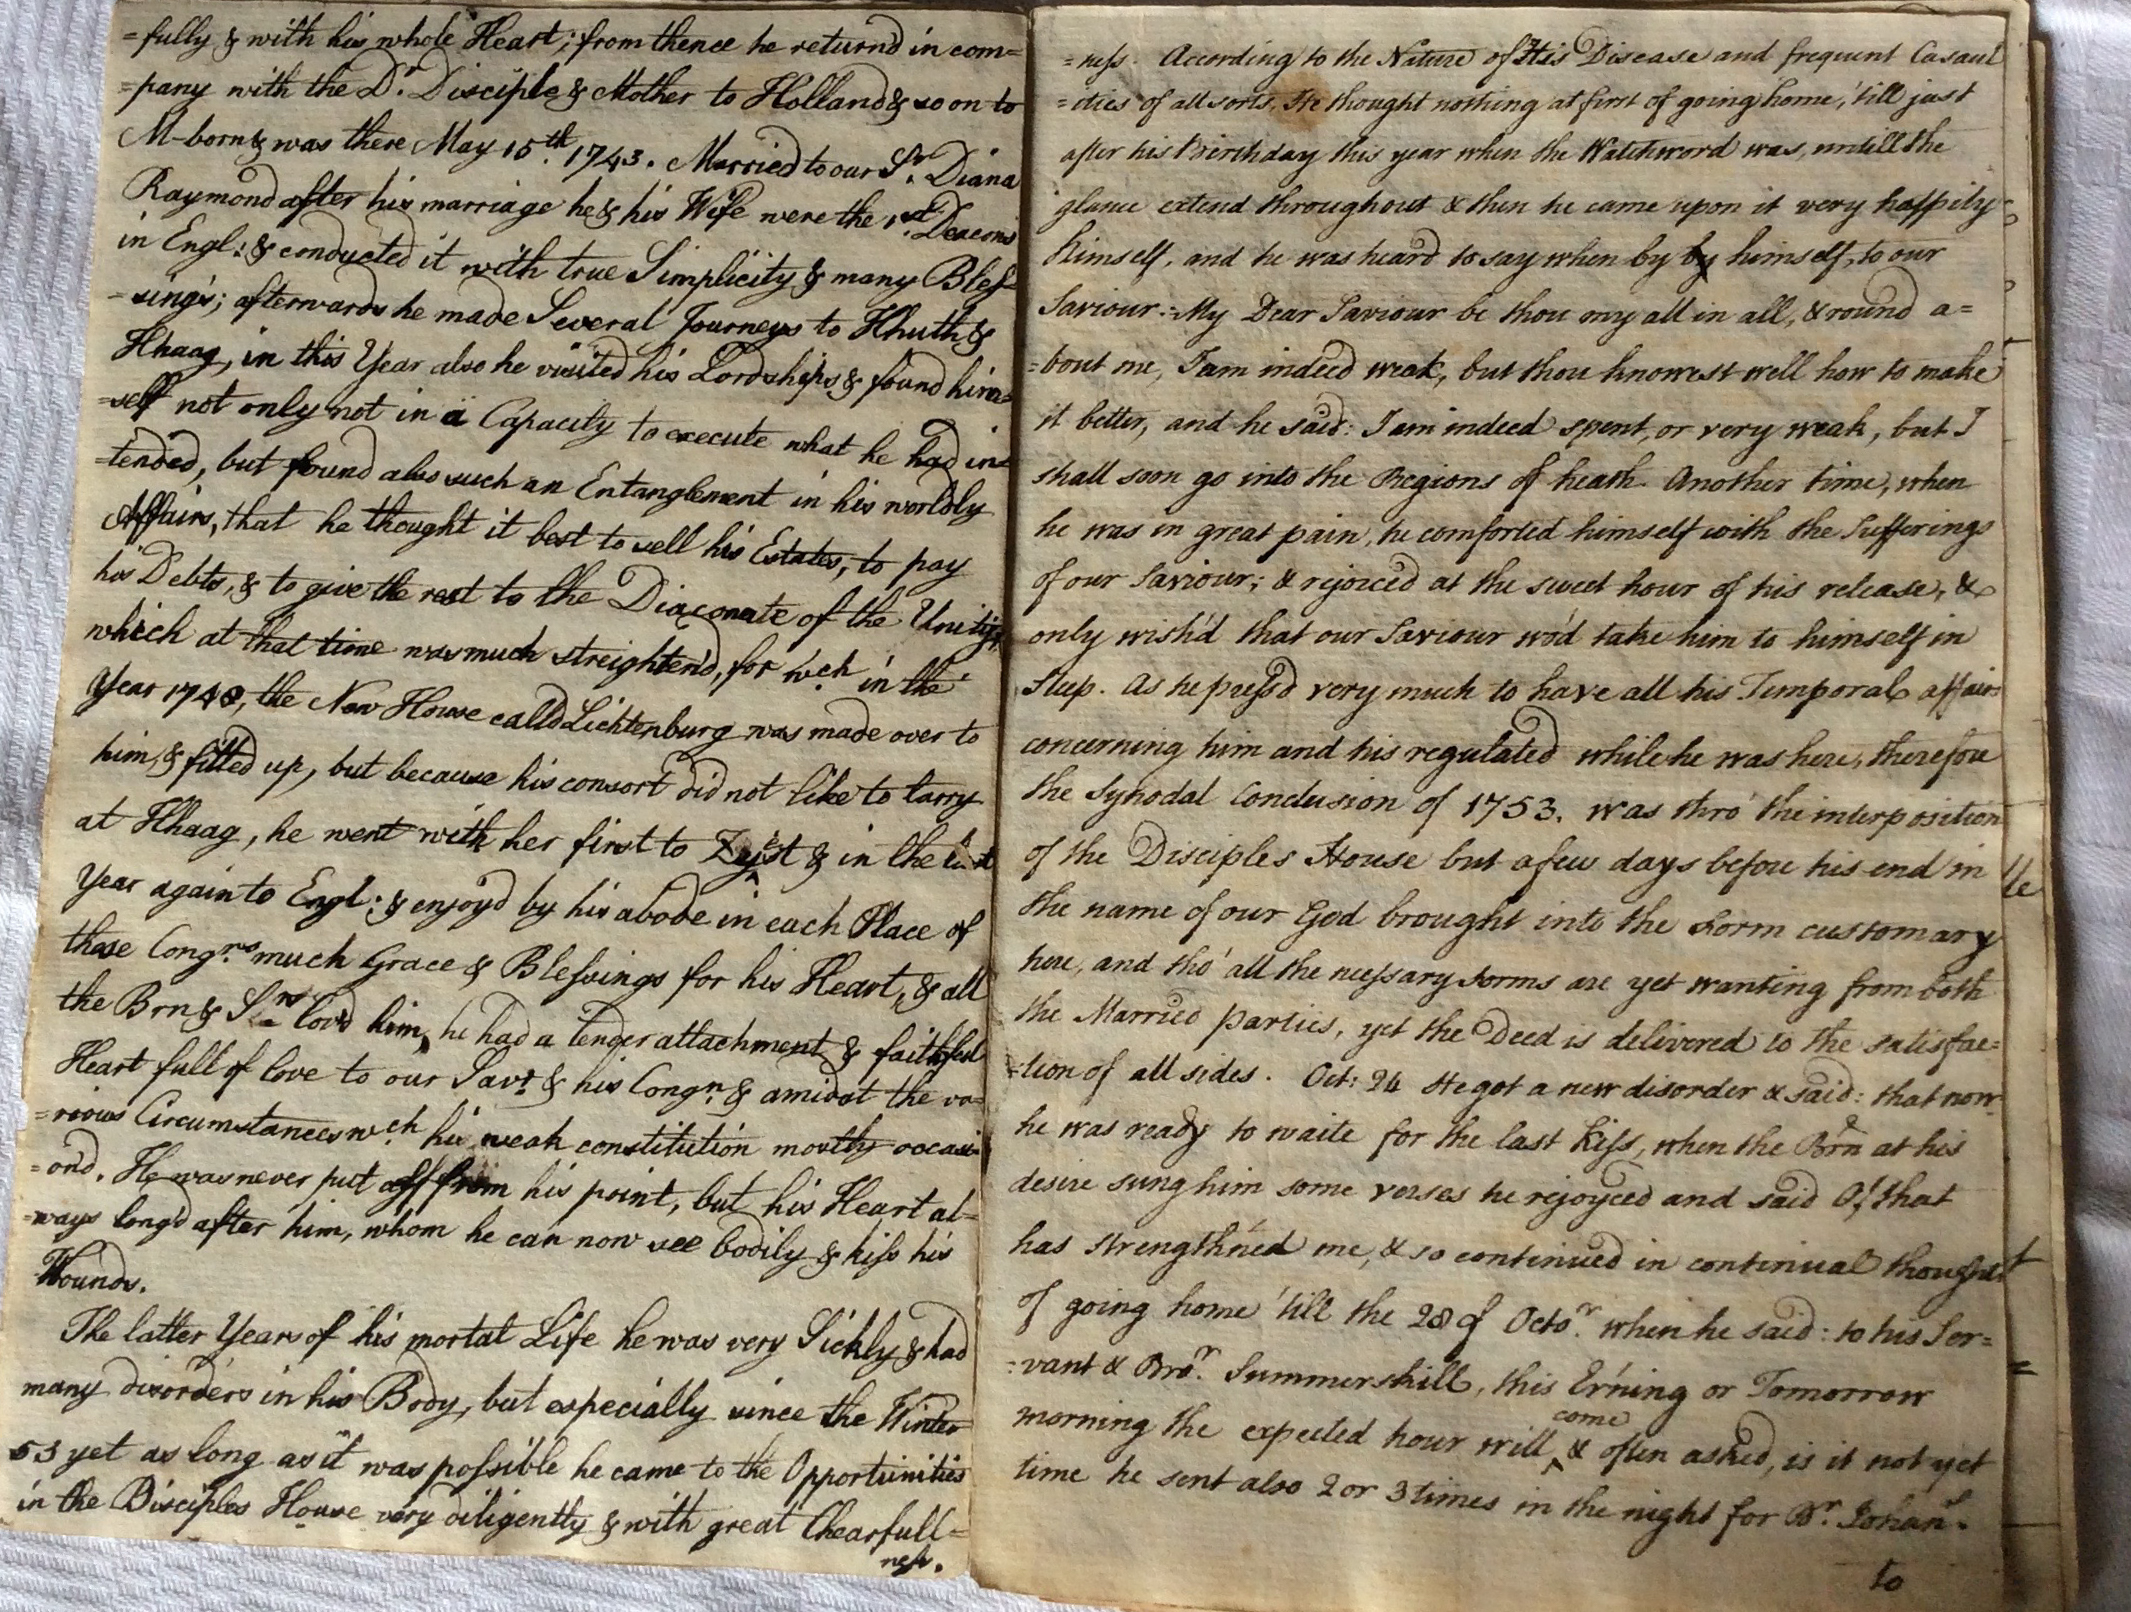 =fully & with his whole Heart; from thence he return'd in com=
=pany with the Dr. Disciple & Mother to Holland & so on to
M-born & was there May 15th. 1743. Married to our Sr. Diana
Raymond after his marriage he & his Wife were the 1st. Deacons
in Engl: & conducted it with true Simplicity & many Bles=
=sings; afterwards he made Several Journeys to Hhuth &
Hhaag, in this Year also he visited his Lordships & found him=
=self not only not in a Capacity to execute what he had in=
=tended, but found also such an Entanglement in his worldly
Affairs, that he thought it best to sell his Estates, to pay
his Debts, & to give the rest to the Diaconate of the Unity,
which at that time was much streighten'd, for wch. in the
Year 1748, the New House call'd Lichtenburg was made over to
him, & fitted up, but because his consort did not like to tarry
at Hhaag, he went with her first to Zeyst & in the
Year again to Engl: & enjoy'd by his abode in each Place of
these Congns. much Grace & Blessings for his Heart, & all
the Brn & Srs lov'd him, he had a tender attachment & faithful
Heart full of love to our Savr. & his Congn. & amidst the va=
=rious Circumstances wch. his weak constitution mostly occasi
=on'd. He was never put off from his point, but his Heart al=
=ways long'd after him, whom he can now see bodily & kiss his
Wounds.
The latter Years of his mortal Life he was very Sickly & had
many disorders in his Body, but especially since the Winter
53 yet as long as it was possible he came to the Opportunities
in the Disciples House very diligently & with great Chearfull=
ness.
=ness. According to the Nature of His Disease and frequent Casaul
=ities of all sorts, He thought nothing at first of going home, 'till just
after his Birthday this year when the Watchword was, untill the
glance extend throughout & then he came upon it very happily
himself, and he was heard to say when by by himself, to our
Saviour:=My Dear Saviour be thou my all in all, & round a=
=bout me, I am indeed weak, but thou knowest well how to make
it better, and he said: I am indeed spent, or very weak, but I
shall soon go into the Regions of heath. Another time, when
he was in great pain, he comforted himself with the Sufferings
of our Saviour; & rejoiced at the sweet hour of his release, &
only wish'd that our Saviour wo'd take him to himself in
Sleep. As he press'd very much to have all his Temporal affairs
concerning him and his regulated while he was here, therefore
the Synodal Conclusion of 1753. was thro' the interposition
of the Disciples House but a few days before his end in
the name of our God brought into the Form customary
here, and tho' all the nessary Forms are yet wanting from both
the Married parties, yet the Deed is delivered to the satisfac=
=tion of all sides. Oct: 24 He got a new disorder & said: that now
he was ready to waite for the last Kiss, when the Brn at his
desire sung him some verses he rejoyced and said O! that
has strength'ned me, & so continued in continual thought
of going home 'till the 28 of Octor. when he said: to his Ser=
=vant & Bror. Summershill, this Ev'ning or Tomorrow
morning the expected hour will come & often asked, is it not yet
time he sent also 2 or 3 times in the night for Br. Johan.
to